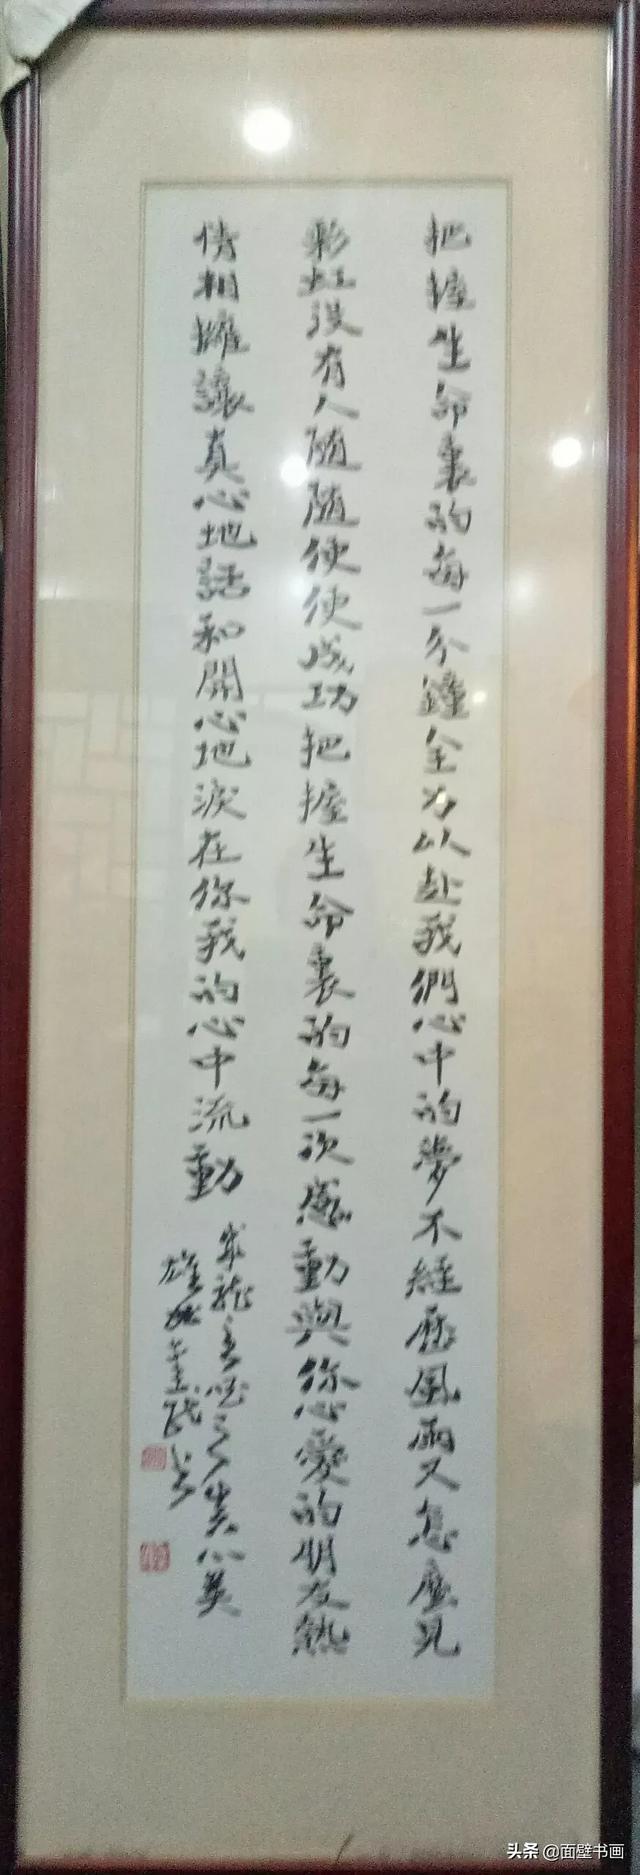 把握生命裏的每一分鐘全力以赴我們心中的夢不經歷風雨又怎麼見
彩虹沒有人随随便便成功把握生命裏的每一次感動與你心愛的朋友熱
情相擁讓真心地話和開心地淚在你我的心中流動
成龍
头条 @面壁书画